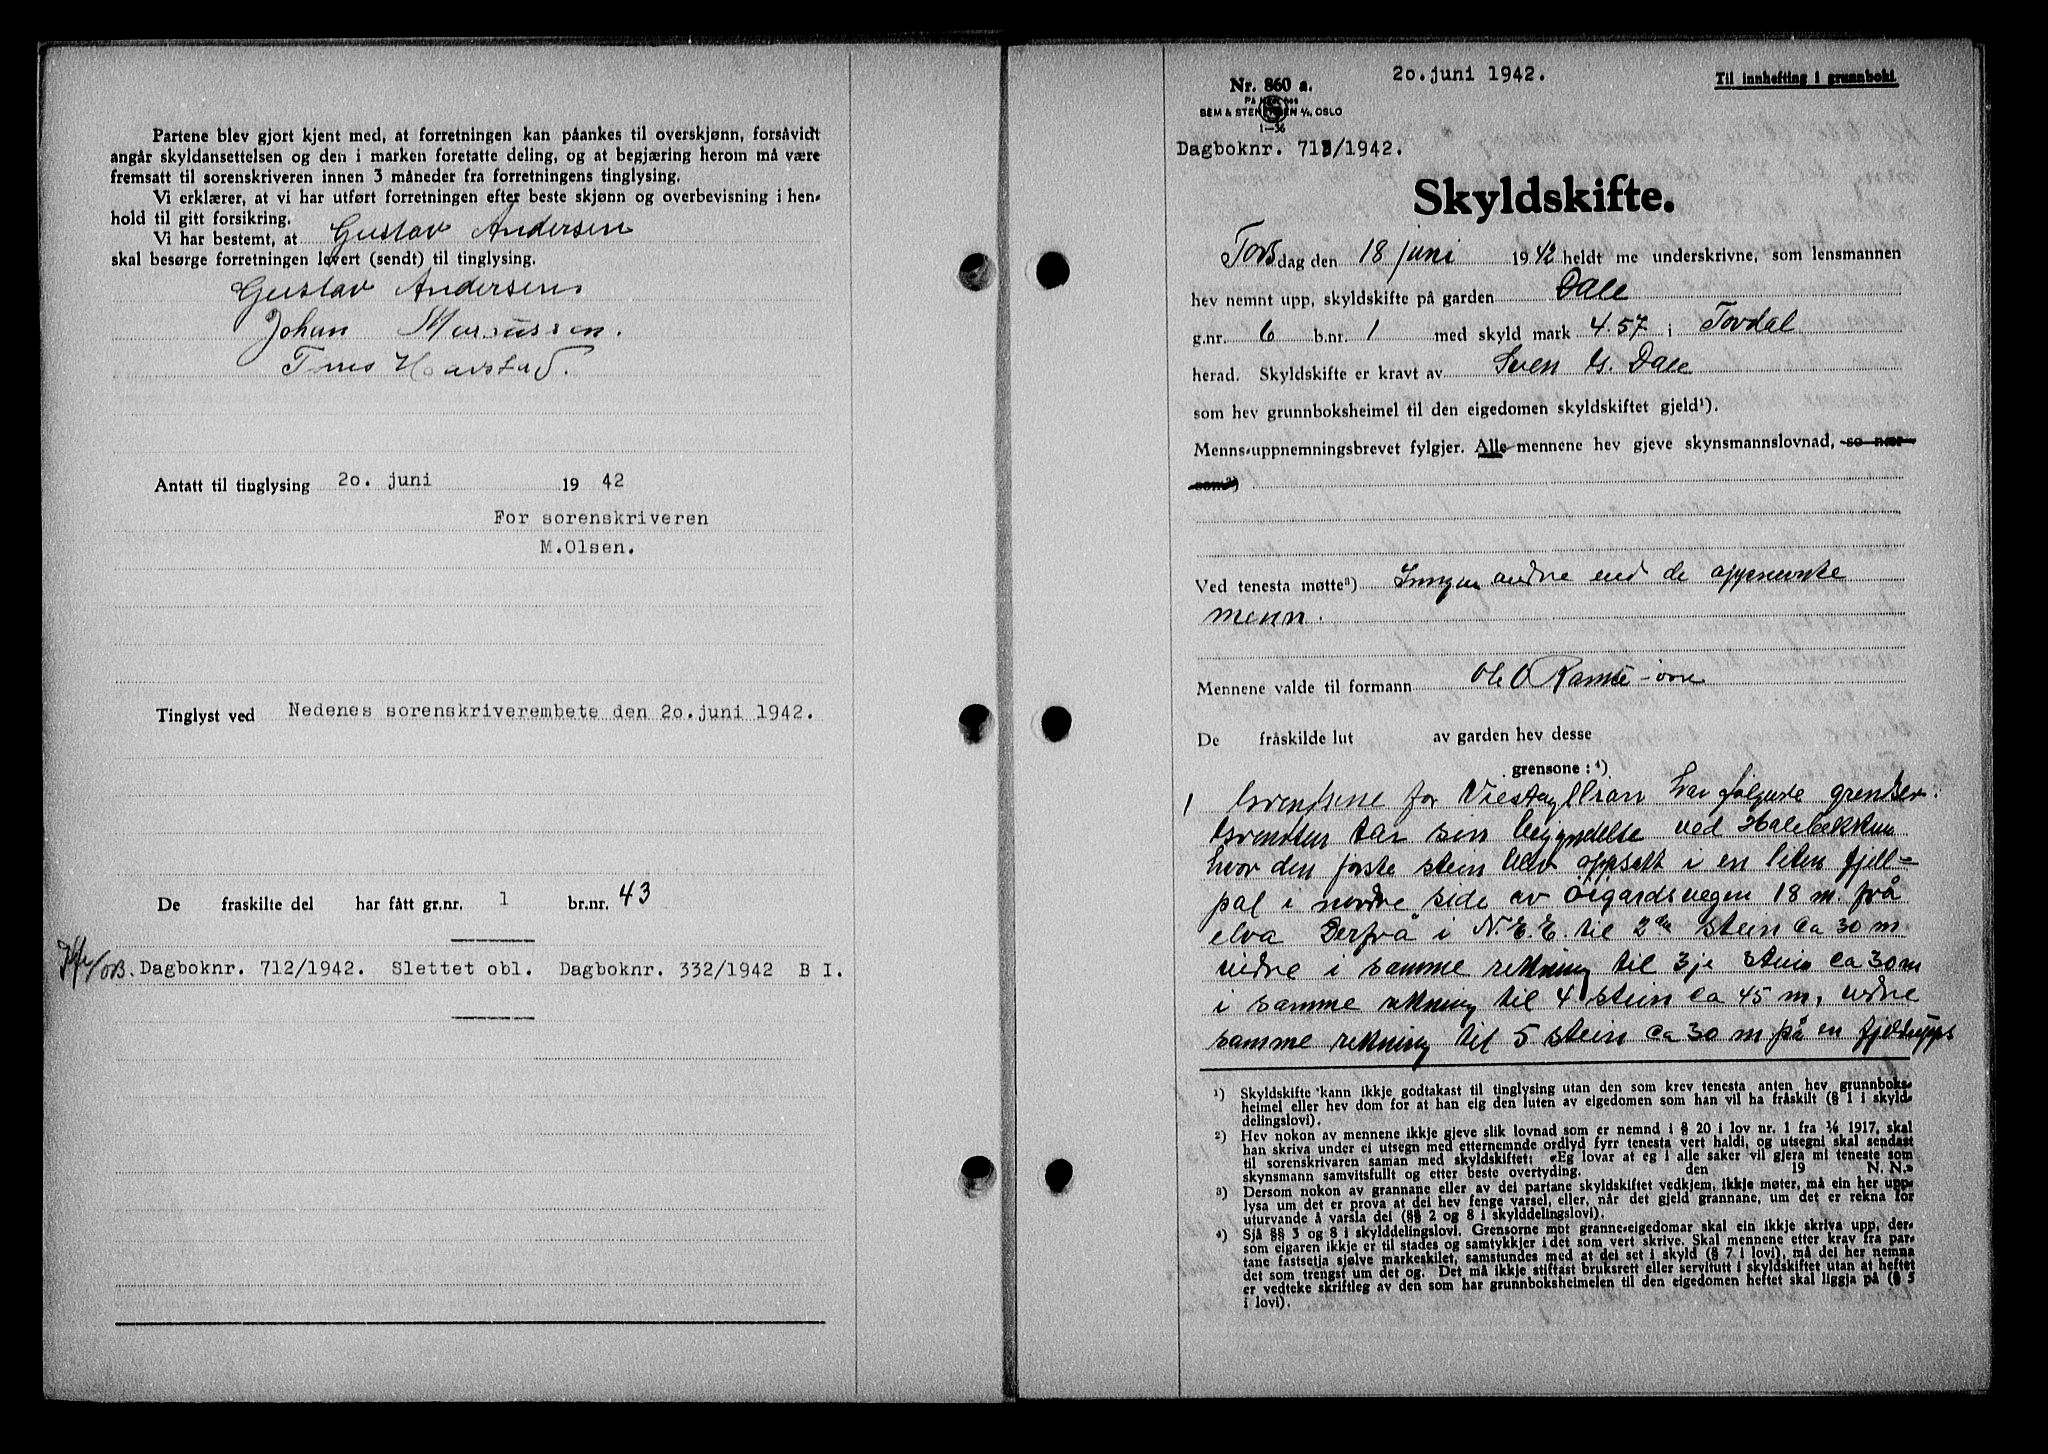 Partene blev gjort kjent med, at forretningen kan påankes til overskjønn, forsåvidt
angår skyldansettelsen og den i marken foretatte deling, og at begjæring herom må være
fremsatt til sorenskriveren innen 3 måneder fra forretningens tinglysing.
Vi erklærer, at vi har utført forretningen efter beste skjønn og overbevisning i hen-
hold til gitt forsikring.
Vi har bestemt, at Gustav Andersen
skal besørge forretningen levert (sendt) til tinglysing.
Gustav Andersen
Johan
Antatt til tinglysing 20. juni 1942
For sorenskriveren
M.Olsen.
Tinglyst ved Nedenes sorenskriverembete den 20. juni 1942.
De fraskilte del har fått gr.nr. 1 br.nr. 43
Dagboknr. 712/1942. Slettet obl. Dagboknr. 332/1942 B I.
20. juni 1942.
Til innhefting i grunnboki
Nr. 860 a.
På lager hos
SEM & STENERSEN A/S, OSLO
1-36
Dagboknr. 713/1942.
Skyldskifte.
Torsdag den 18 juni 1942 heldt me underskrivne, som lensmannen
hev nemnt upp, skyldskifte på garden Dale
g.nr. 6 b.nr. 1 med skyld mark 4.57 i Tovdal
herad. Skyldskifte er kravt av Sven G. Dale
som hev grunnboksheimel til den eigedomen skyldskiftet gjeld¹).
Menns-uppnemningsbrevet fylgjer. Alle mennene hev gjeve skynsmannslovnad, so nær
som²)
Ved tenesta møtte³) Inngen andre end de oppnevnte
menn.
Mennene valde til formann Ole O Ramse
De fråskilde lut av garden hev desse
grensone: ⁴)
1 Grensene for har følgende grenser.
Grensen tar sin begyndelse ved Halebekken
hvor den første stein blev oppsatt i en liten fjell-
pal i nordre side av Øigardsvegen 18 m. frå
elva Derfrå i N.E.E. til 2den stein ca 30 m
vidre i samme retning til 3je stein ca 30 m
i samme retning til 4 stein ca 45 m, vidre
samme retning til 5 stein ca 30 m på en
¹) Skyldskifte kann ikkje godtakast til tinglysing utan den som krev tenesta anten hev grunnboks-
heimel eller hev dom for at han eig den luten av eigedomen som han vil ha fråskilt (§ 1 i skyld-
delingslovi).
²) Hev nokon av mennene ikkje gjeve slik lovnad som er nemnd i § 20 i lov nr. 1 fra 1/6 1917, skal
han skriva under ei utsegn med etternemnde ordlyd fyrr tenesta vert haldi, og utsegni skal sendast
til sorenskrivaren saman med skyldskiftet: «Eg lovar at eg i alle saker vil gjera mi teneste som
skynsmann samvitsfullt og etter beste overtyding. den 19 N. N.»
³) Dersom nokon av grannane eller av dei partane skyldskiftet vedkjem, ikkje møter, må ein her upp-
lysa um det er prova at dei hev fenge varsel, eller, når det gjeld grannane, um det er rekna for
uturvande å varsla dei (§§ 2 og 8 i skylddelingslovi).
⁴) Sjå §§ 3 og 8 i skylddelingslovi. Grensorne mot granne-eigedomar skal ein ikkje skriva upp, der-
som eigaren ikkje er til stades og samtykkjer i det som vert skrive. Skal mennene etter krav fra par-
tane fastsetja sjølve markeskilet, samstundes med at dei set i skyld (§ 7 i lovi), må dei her nemna
det som trengst um det og. Det må ikkje stiftast bruksrett eller servitutt i skyldskiftet utan at heftet
er vedteke skriftleg av den som har grunnboksheimelen til den eigedomen heftet skal liggja på (§ 5
i lovi).